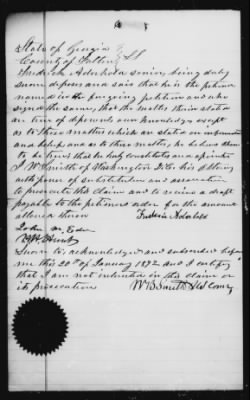 State of Georgia
County of Fulton SS
Frederic Adolphd senior, being duly
sworn deposes and says that he is the petitioner
named in the foregoing petition and who
signed the same, that the matters therein stated
are true of deponents own knowledge except
as to those matters which are stated on information
and belief, and as to those matters, he believes them
to be true, that he hereby constitutes and appoints
J. W. Smith of Washington D.C. his Attorney
with power of substitution and revocation
to prosecute this claim and to receive a draft
payable to the petitioners order for the amount
allowed therein
John M.
Sworn to, acknowledged and subscribed before
me this 20th of January 1872 and I certify
that I am not interested in this claim or
its prosecution
W B Smith US Comr